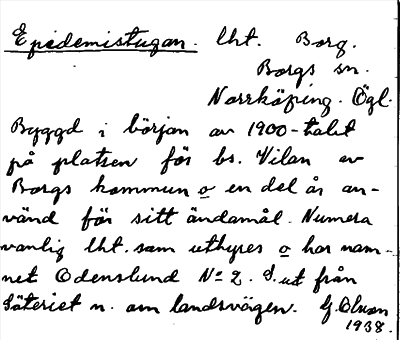 Epidemistugan. lht. Borg.
Borgs sn.
Norrköping. Ögl.
Byggd i början av 1900-talet
på platsen för bs. Vilan av
Borgs kommun o en del år an-
vänd för sitt ändamål. Numera
vanlig lht. som uthyres o har nam-
net Odenslund No 2. S. ut från
Säteriet n. om landsvägen. G. Olsson
1938.